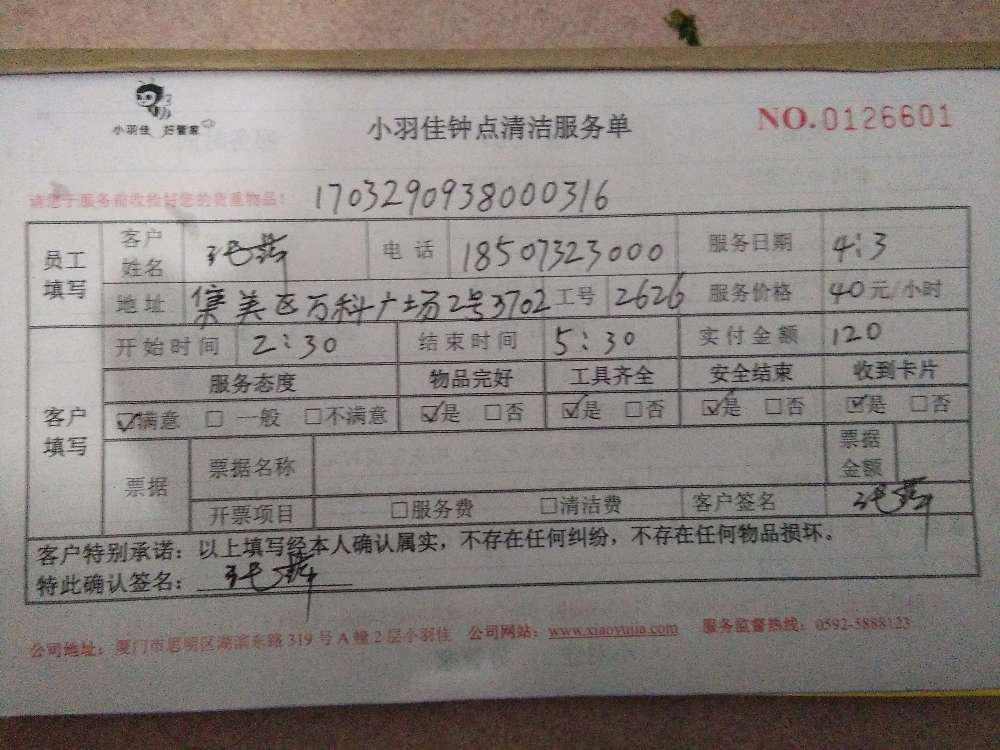 小羽佳 好管家
小羽佳钟点清洁服务单
NO.0126601
请您于服务前收捡好您的贵重物品！
1703290938000316
员工填写 客户姓名 电话 18507323000 服务日期 4:3
地址 集美区万科广场2号3702 工号 2626 服务价格 40元/小时
客户填写 开始时间 2:30 结束时间 5:30 实付金额 120
服务态度 物品完好 工具齐全 安全结束 收到卡片
☑满意 □一般 □不满意 ☑是 □否 ☑是 □否 ☑是 □否 ☑是 □否
票据 票据名称 票据金额
开票项目 □服务费 □清洁费 客户签名
客户特别承诺：以上填写经本人确认属实，不存在任何纠纷，不存在任何物品损坏。
特此确认签名：
公司地址：厦门市思明区湖滨东路319号A幢2层小羽佳 公司网站：www.xiaoyujia.com 服务监督热线：0592-5888123